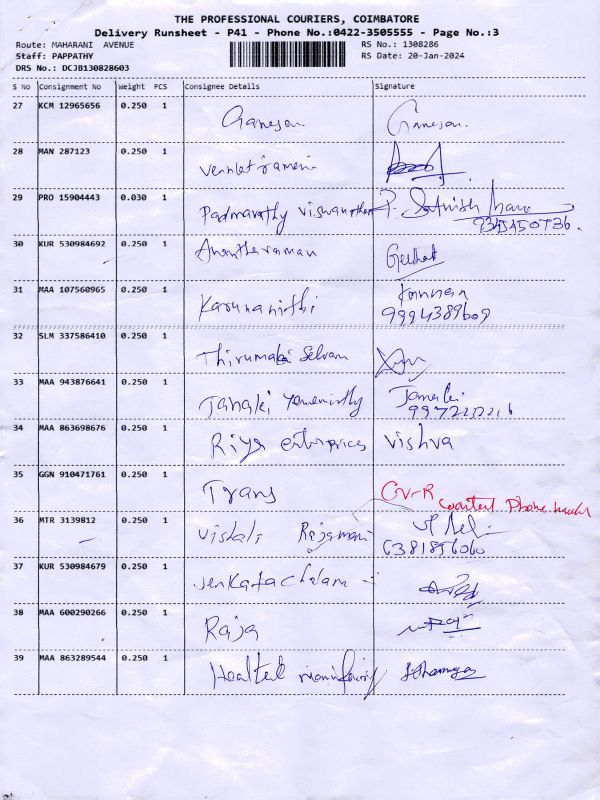 THE PROFESSIONAL COURIERS, COIMBATORE
Delivery Runsheet - P41 - Phone No.:0422-3505555 - Page No.:3
Route: MAHARANI AVENUE RS No.: 1308286
Staff: PAPPATHY RS Date: 20-Jan-2024
DRS No.: DCJB130828603
S No Consignment No Weight PCS Consignee Details Signature
27 KCM 12965656 0.250 1 Ganesan Ganesan.
28 MAN 287123 0.250 1
29 PRO 15904443 0.030 1 Padmavathy
30 KUR 530984692 0.250 1 Anantharaman
31 MAA 107560965 0.250 1 Karunanithi Kannan
9994389609
32 SLM 337586410 0.250 1 Selvam
33 MAA 943876641 0.250 1 Janaki
34 MAA 863698676 0.250 1 Riya Vishva
35 GGN 910471761 0.250 1 Trans
36 MTR 3139812 0.250 1 Rajamani
37 KUR 530984679 0.250 1 Venkatachalam
38 MAA 600290266 0.250 1 Raja
39 MAA 863289544 0.250 1